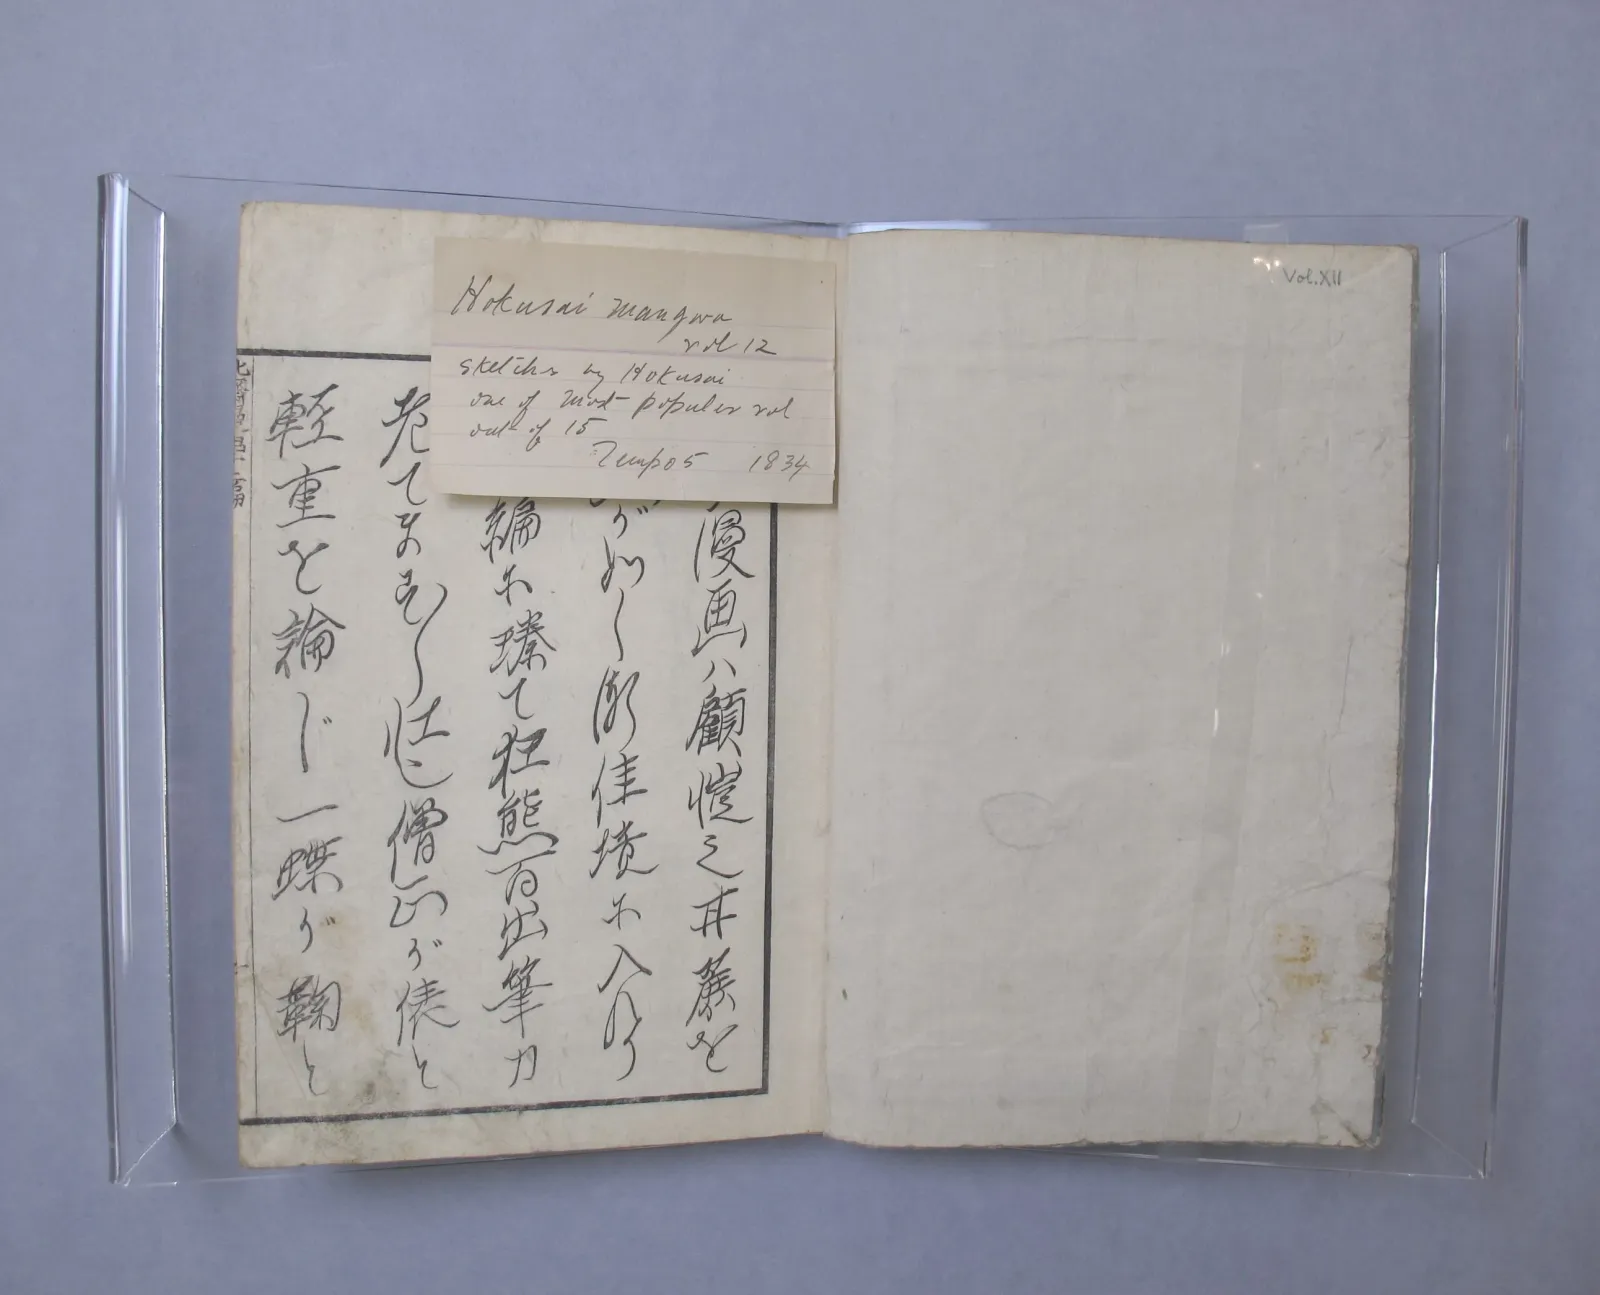 Hokusai mangwa
vol 12
sketches by Hokusai
one of most popular vol
out of 15
Tempo 5 1834
Vol.XII
漫画ハ顧愷之甘蔗を
が如し漸佳境に入る
編に臻て狂態百出筆力
てます〳〵 僧正が俵と
軽重を論じ一蝶が鞠と